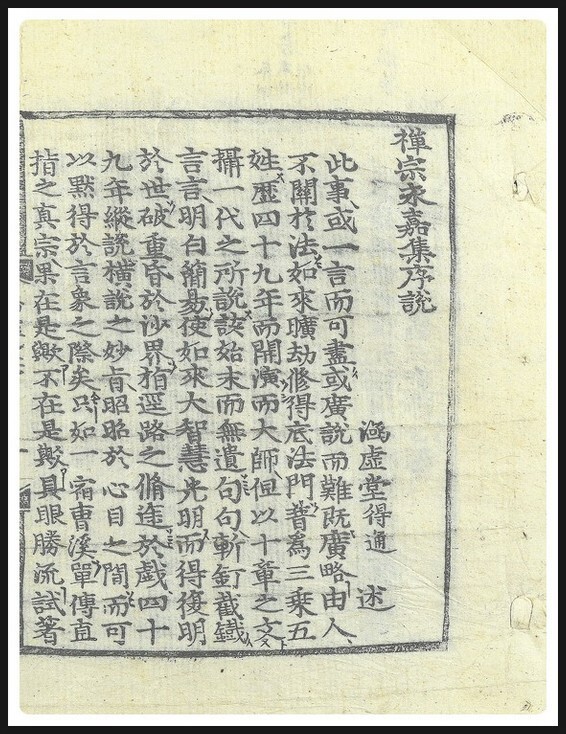 禪宗永嘉集序說
涵虛堂得通 述
此事或一言而可盡或廣說而難旣廣略由人
不關於法如來曠劫修得底法門普爲三乘五
姓歷四十九年而開演而大師但以十章之文
攝一代之所說該始末而無遺句句斬釘截鐵
言言明白簡易使如來大智慧光明而得復明
於世破重昏於沙界指逕路之脩途於戱四十
九年縱說橫說之妙旨昭昭於心目之間而可
以默得於言象之際矣只如一宿曹溪單傳直
指之真宗果在是歟不在是歟具眼勝流試著